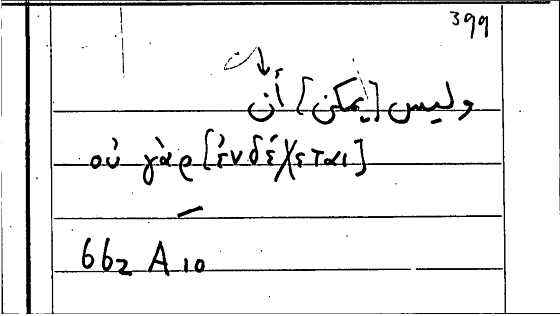 399
وليس [يمكن] أن
οὐ γὰρ [ἐνδέχεται]
662 A 10